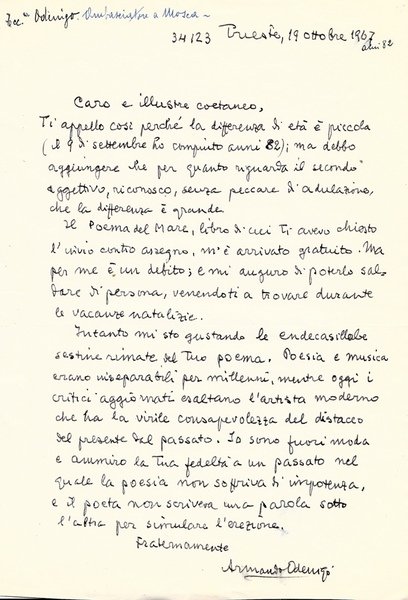 Ecc.za Odenigo. Ambasciatore a Mosca ~
34123 Trieste, 19 ottobre 1967
anni 82
Caro e illustre coetaneo,
Ti appello così perché la differenza di età è piccola
(il 9 di settembre ho compiuto anni 82); ma debbo
aggiungere che per quanto riguarda il secondo
aggettivo, riconosco, senza peccare di adulazione,
che la differenza è grande.
Il Poema del Mare, libro di cui Ti avevo chiesto
l'invio contro assegno, m'è arrivato gratuito. Ma
per me è un debito; e mi auguro di poterlo sal=
dare di persona, venendoti a trovare durante
le vacanze natalizie.
Intanto mi sto gustando le endecasillabe
sestine rimate del Tuo poema. Poesia e musica
erano inseparabili per millenni, mentre oggi i
critici aggiornati esaltano l'artista moderno
che ha la virile consapevolezza del distacco
del presente dal passato. Io sono fuori moda
e ammiro la Tua fedeltà a un passato nel
quale la poesia non soffriva di impotenza,
e il poeta non scriveva una parola sotto
l'altra per simulare l'erezione.
Fraternamente
Armando Odenigo